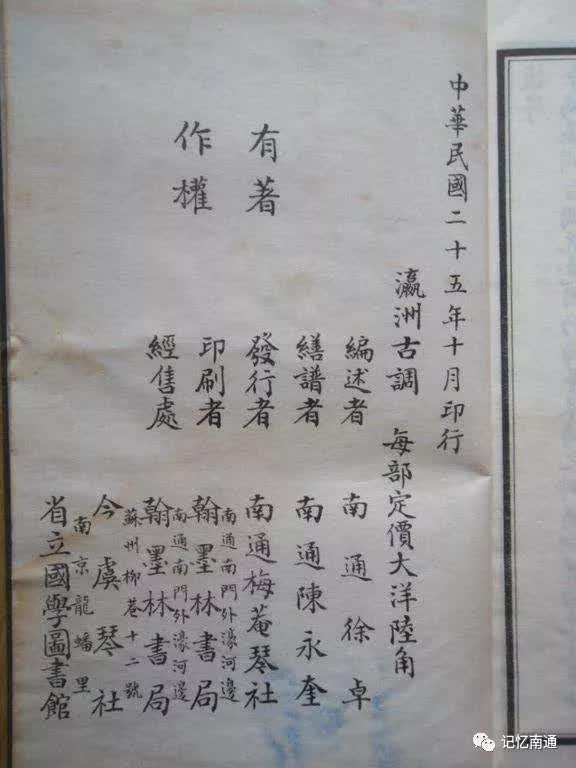 中華民國二十五年十月印行
瀛洲古調　每部定價大洋陸角
編述者　南通徐卓
繕譜者　南通陳永奎
有著
作權
發行者　南通梅菴琴社
南通南門外濠河邊
印刷者　翰墨林書局
南通南門外濠河邊
經售處　翰墨林書局
蘇州柳巷十二號
今虞琴社
南京龍蟠里
省立國學圖書館
记忆南通